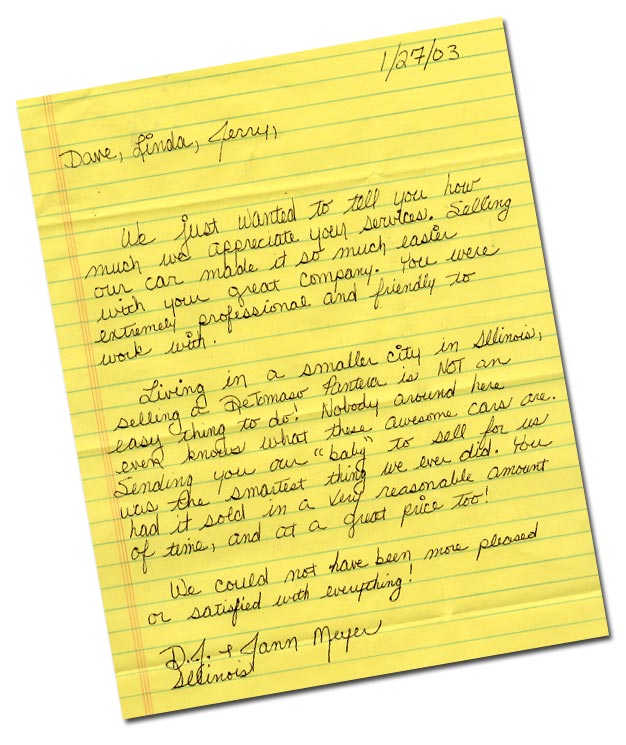 1/27/03
Dave, Linda, Jerry,
We just wanted to tell you how
much we appreciate your services. Selling
our car made it so much easier
with your great company. You were
extremely professional and friendly to
work with.
Living in a smaller city in Illinois,
selling a DeTomaso Pantera is NOT an
easy thing to do! Nobody around here
even knows what these awesome cars are.
Sending you our "baby" to sell for us
was the smartest thing we ever did. You
had it sold in a very reasonable amount
of time, and at a great price too!
We could not have been more pleased
or satisfied with everything!
D.J. + Jann Meyer
Illinois